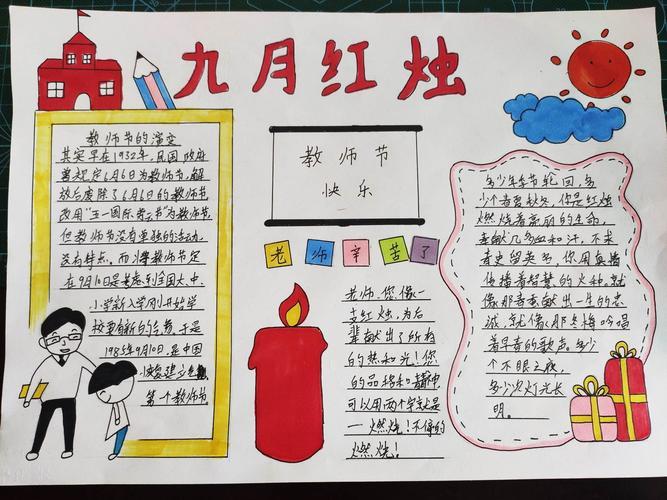 九月红烛
教师节的演变
其实早在1932年,民国政府
曾规定6月6日为教师节,解
放后废除了6月6日的教师节,
改用"五一国际劳动节"为教师节,
但教师节没有单独的活动,
没有特点。而将教师节定
在9月10日是考虑到全国大、中、
小学新入学刚开始学
校要有新的气象。于是
1985年9月10日,是中国
恢复建立
第一个教师节
教师节
快乐
老师辛苦了
老师,您像一
支红烛,为后
辈献出了所有
的热和光!您
的品格和精神
可以用两个字就是
一燃烧!不停的
燃烧!
多少年季节轮回,多
少个春夏秋冬,你是红烛
燃烧着亮丽的生命,
奉献几多血和汗,不求
青史留英名,你用真情
传播着智慧的火种。就
像那春蚕献出一生的忠
诚,就像那冬梅吟唱
着早春的歌声。多少
个不眠之夜,
多少次灯光长
明。